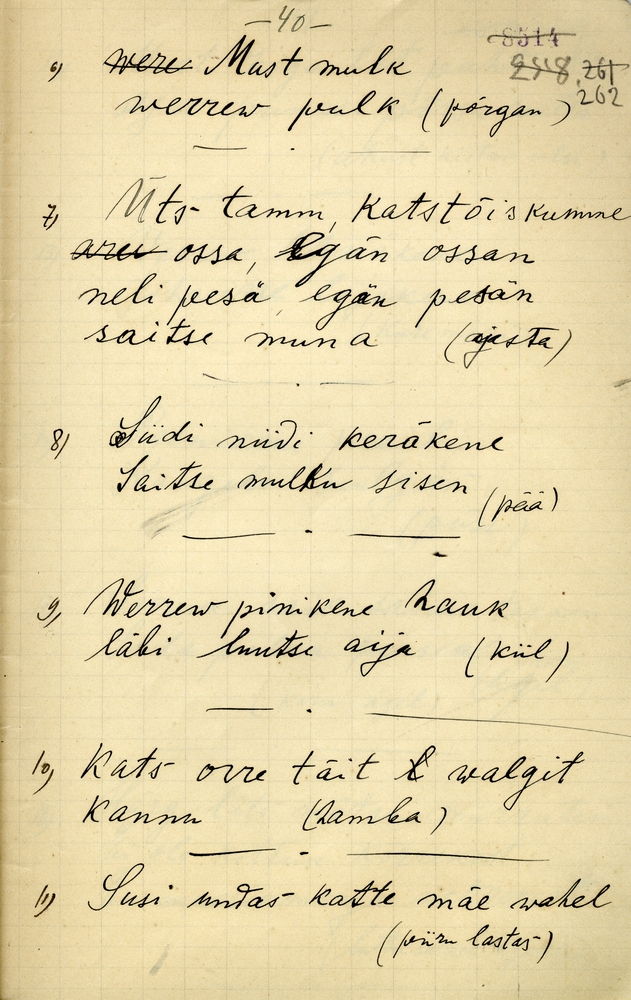 - 40 -
8514
248 261
262
6) were Must mulk
werrew pulk (põrgan)
7) Üts tamm, Katstõiskumme
aru ossa, Egän ossan
neli pesä egän pesän
saitse muna (ajasta)
8) Siidi niidi keräkene
Saitse mulku sisen
(pää)
9) Werrew pinikene hauk
läbi luutse aija (kiil)
10) Kats orre täit walgit
kannu (hamba)
11) Susi undas katte mäe wahel
(piiru lastas)